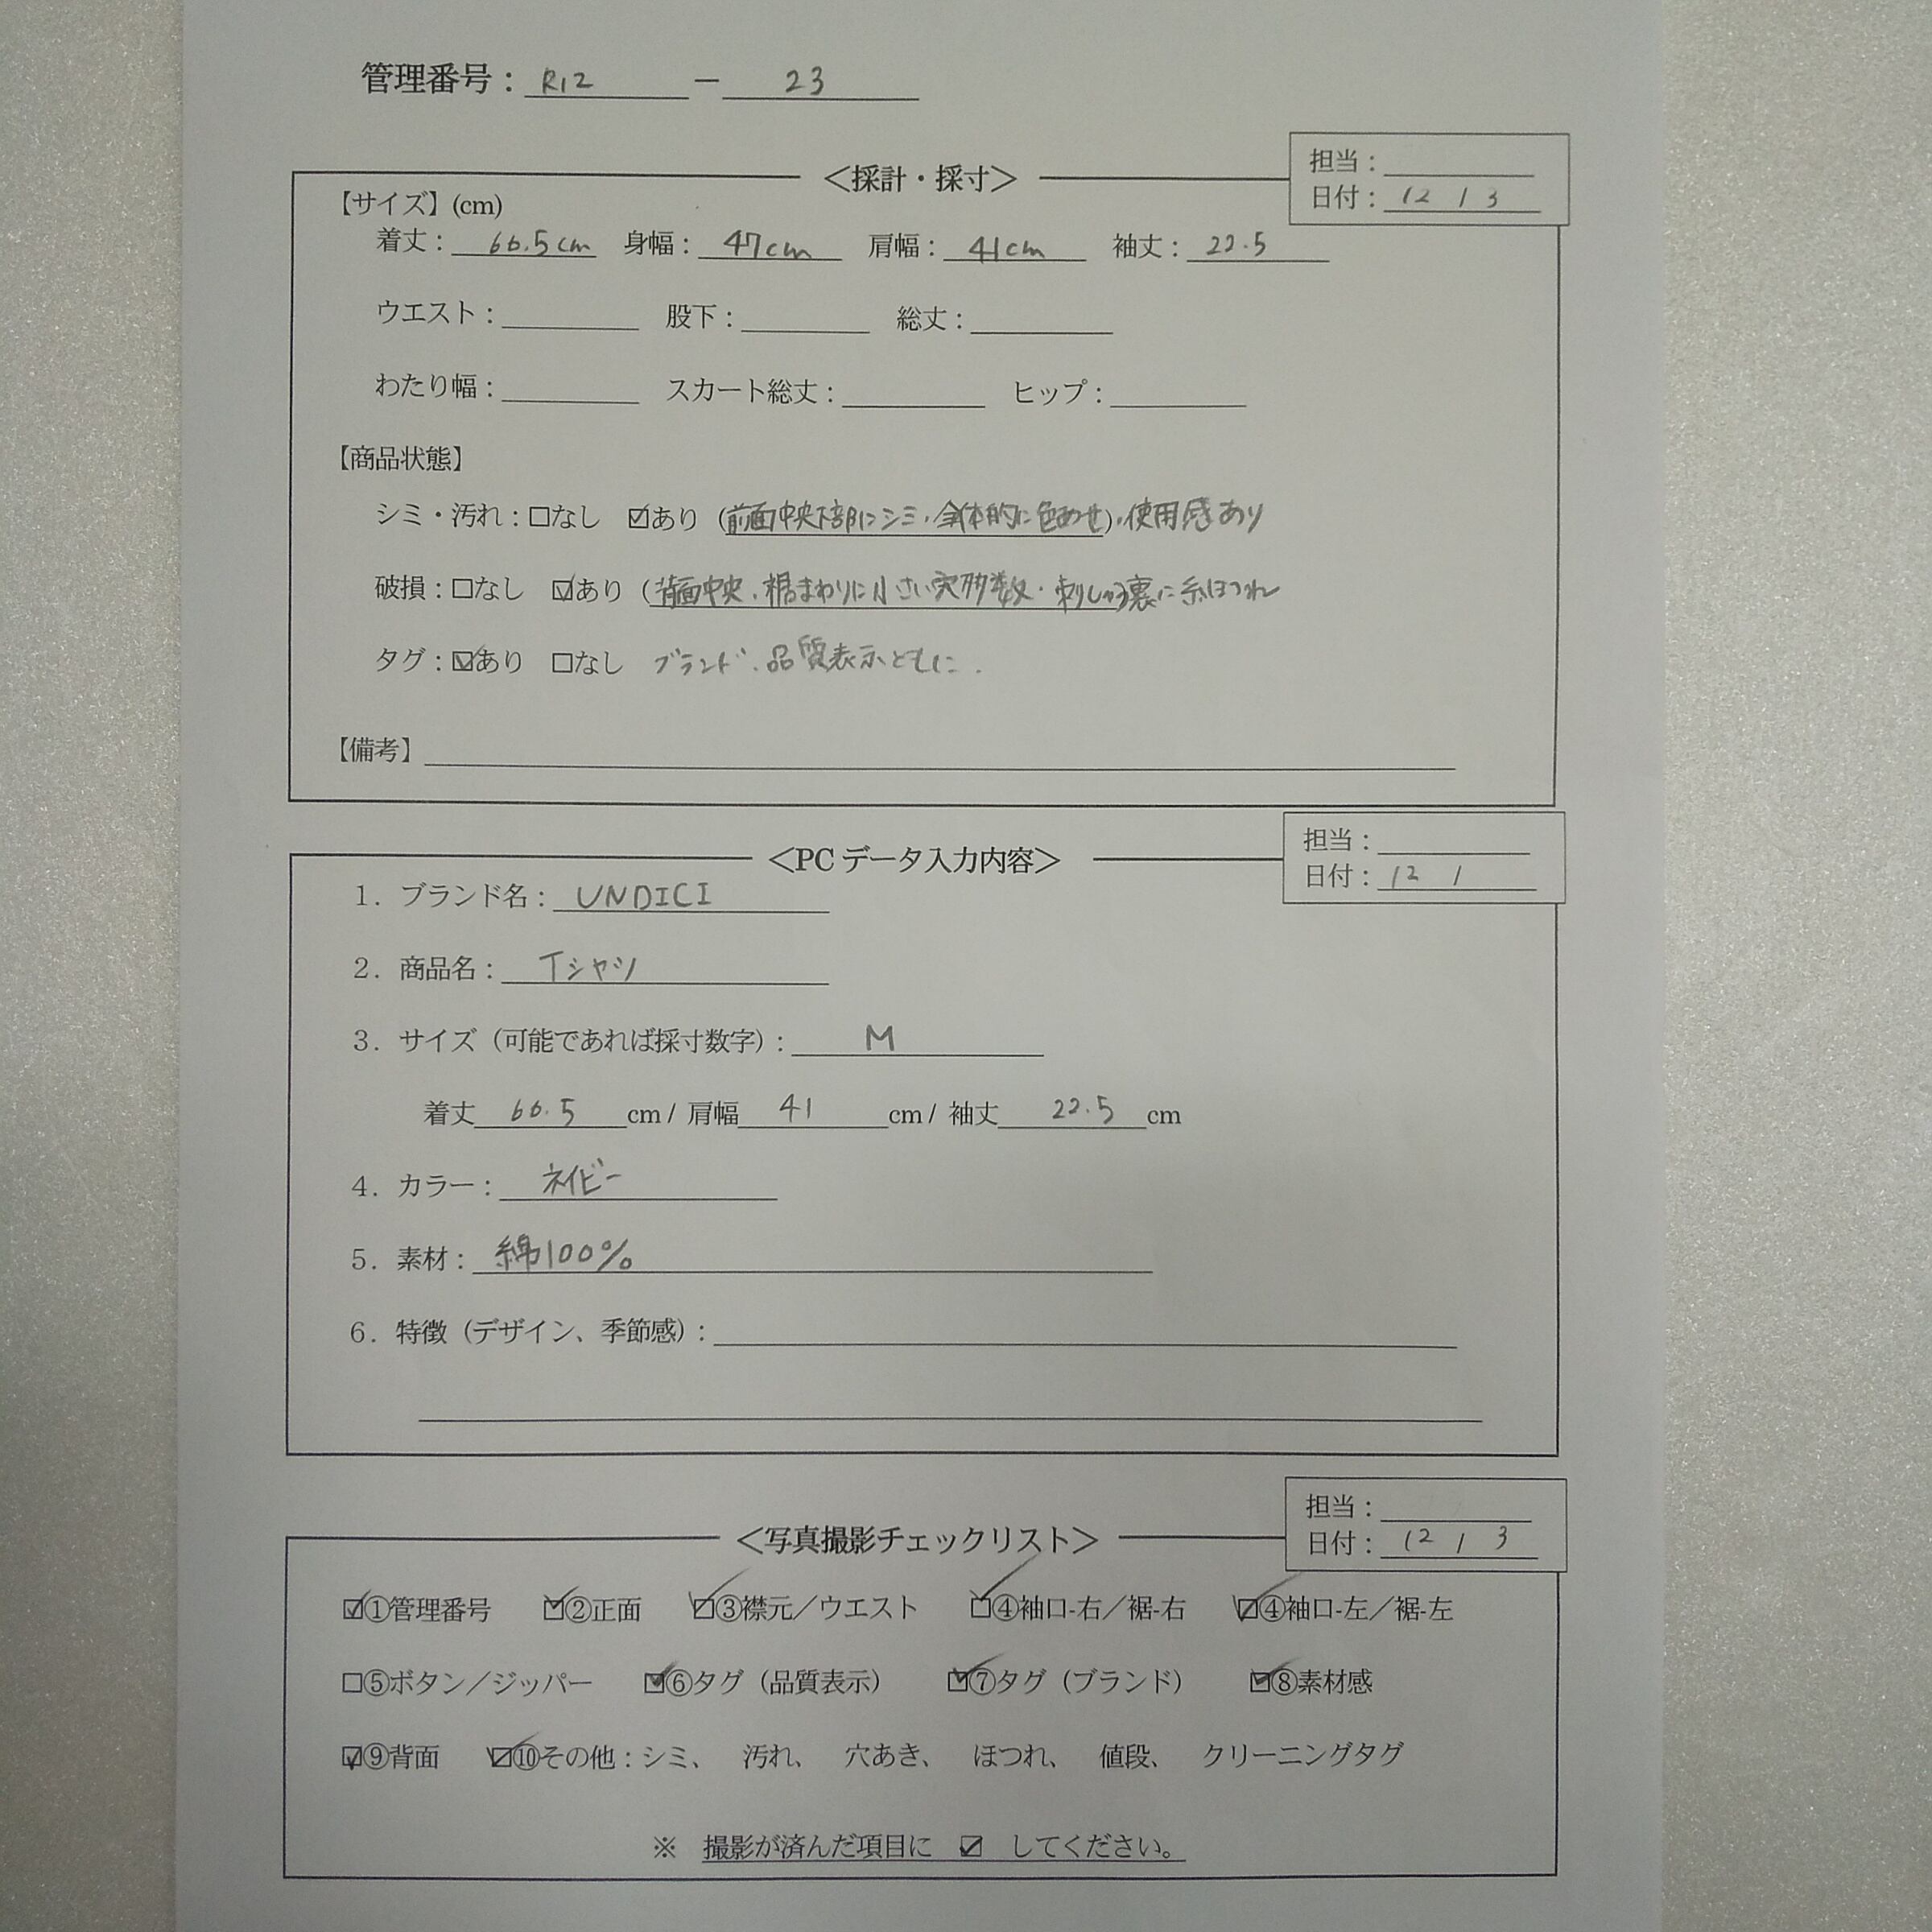 管理番号：R12 － 23
＜採計・採寸＞
担当：
日付：12 / 3
【サイズ】(cm)
着丈：66.5cm 身幅：47cm 肩幅：41cm 袖丈：22.5
ウエスト： 股下： 総丈：
わたり幅： スカート総丈： ヒップ：
【商品状態】
シミ・汚れ：□なし ☑あり（前面中央下部にシミ・全体的に色あせ）・使用感あり
破損：□なし ☑あり（背面中央、裾まわりに小さい穴多数・刺しゅう裏に糸ほつれ
タグ：☑あり □なし ブランド、品質表示ともに.
【備考】
＜PCデータ入力内容＞
担当：
日付：12 /
1．ブランド名：UNDICI
2．商品名：Tシャツ
3．サイズ（可能であれば採寸数字）：M
着丈 66.5 cm / 肩幅 41 cm / 袖丈 22.5 cm
4．カラー：ネイビー
5．素材：綿100%
6．特徴（デザイン、季節感）：
＜写真撮影チェックリスト＞
担当：
日付：12 / 3
☑①管理番号 ☑②正面 ☑③襟元／ウエスト ☑④袖口-右／裾-右 ☑④袖口-左／裾-左
□⑤ボタン／ジッパー ☑⑥タグ（品質表示） ☑⑦タグ（ブランド） ☑⑧素材感
☑⑨背面 ☑⑩その他：シミ、 汚れ、 穴あき、 ほつれ、 値段、 クリーニングタグ
※ 撮影が済んだ項目に ☑ してください。